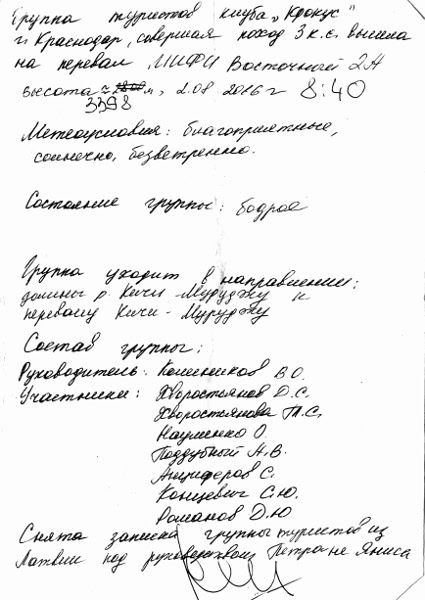 Группа туристов клуба „Крокус"
г. Краснодар, совершая поход 3 к.с. вышла
на перевал МИФИ Восточный 2А
высота ≈ м, 2.08 2016г 8:40
3398
Метеоусловия: благоприятные,
солнечно, безветренно.
Состояние группы: бодрое
Группа уходит в направлении:
долины р. Кичи-Муруджу к
перевалу Кичи-Муруджу
Состав группы:
Руководитель: В О.
Участники: Хворостянов Д.С.
Хворостянова Т.С.
Науменко О.
Поддубный А.В.
Анциферов С.
Концевич С.Ю.
Романов Д.Ю
Снята записка группы туристов из
Латвии под руководством Яниса